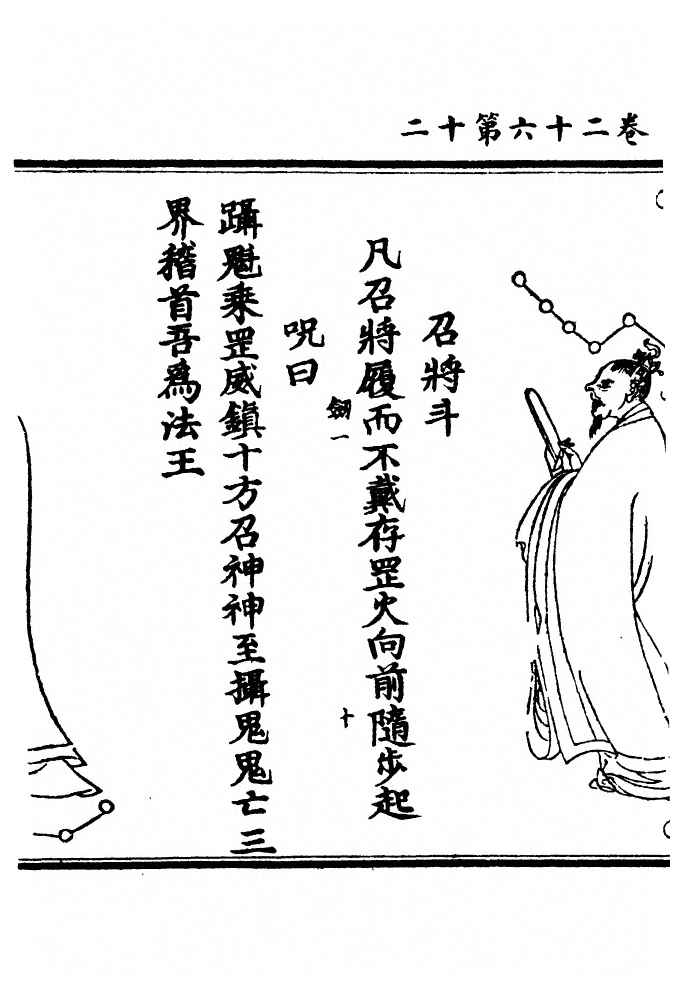 卷二十六第十二
召將斗
凡召將履而不戴存罡火向前隨步起
劒一
十
呪曰
躡魁乘罡威鎮十方召神神至攝鬼鬼亡三
界稽首吾爲法王